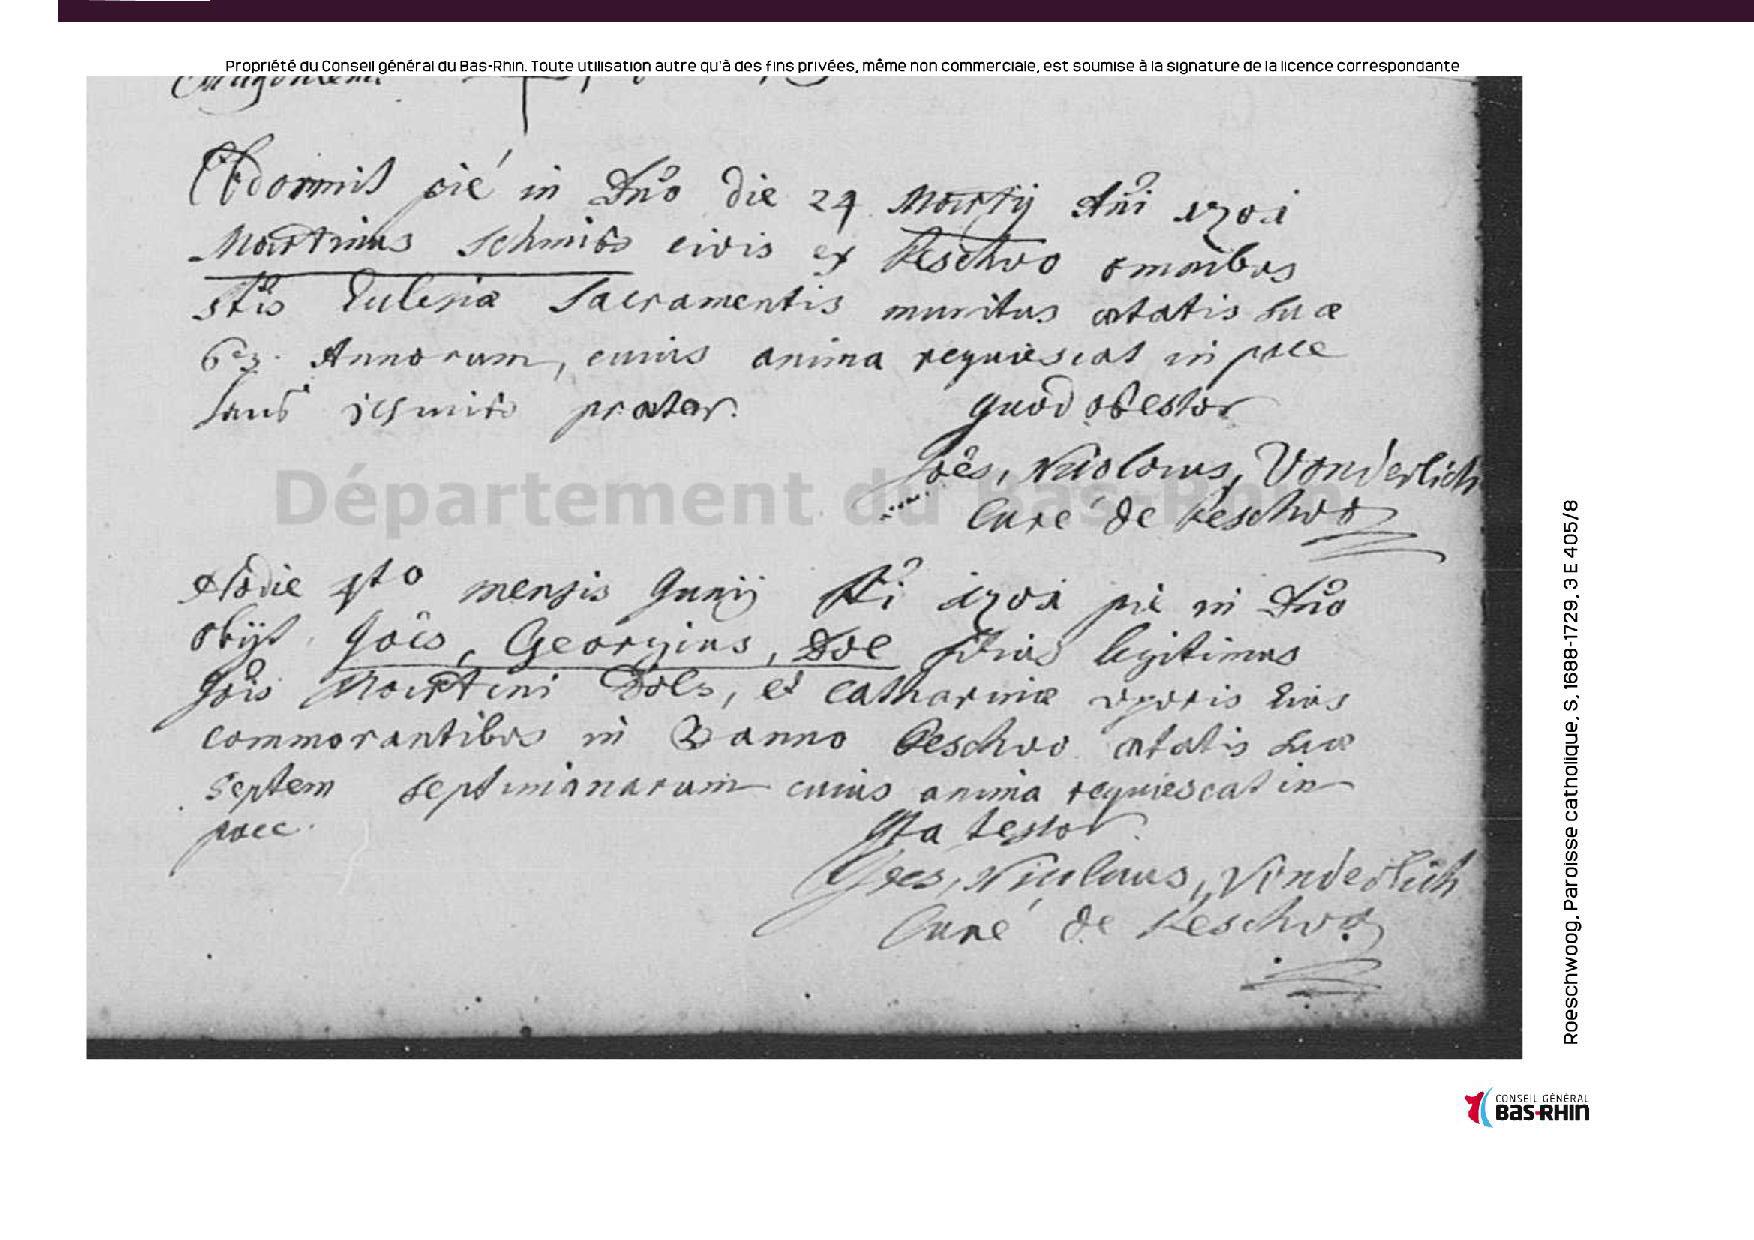 Propriété du Conseil général du Bas-Rhin. Toute utilisation autre qu'à des fins privées, même non commerciale, est soumise à la signature de la licence correspondante
Obdormit pié in Dño die 24 Martij Añi 1701
Martinus Schmits civis ex Reschvo omnibus
stis Eulesiæ Sacramentis munitus ætatis suæ
63. Annorum, cuius anima requiescat in pace
prætor. quod attestor
Joês, Nicolaus, Vonderlich
Curé de Reschvog
Hodie 4to mensis Junij Añi 1701 pié in Dño
obijt. Joês, Georgius, Doll filius legitimus
Jois Martini Dols, et catharinæ uxoris eius
commorantibus in Banno Reschvo ætatis suæ
septem septimanarum cuius anima requiescat in
pace. Ita testor
Joes, Nicolaus, Vonderlich
Curé de Reschvog
Département du Bas-Rhin
Roeschwoog, Paroisse catholique, S, 1688-1729, 3 E 405/8
CONSEIL GÉNÉRAL
BAS-RHIN